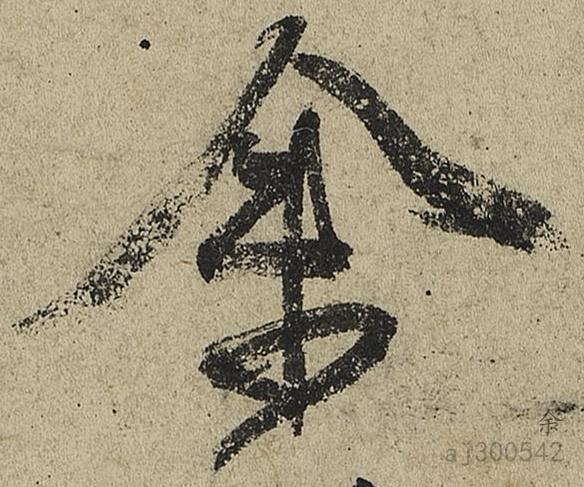 余
余
aj300542